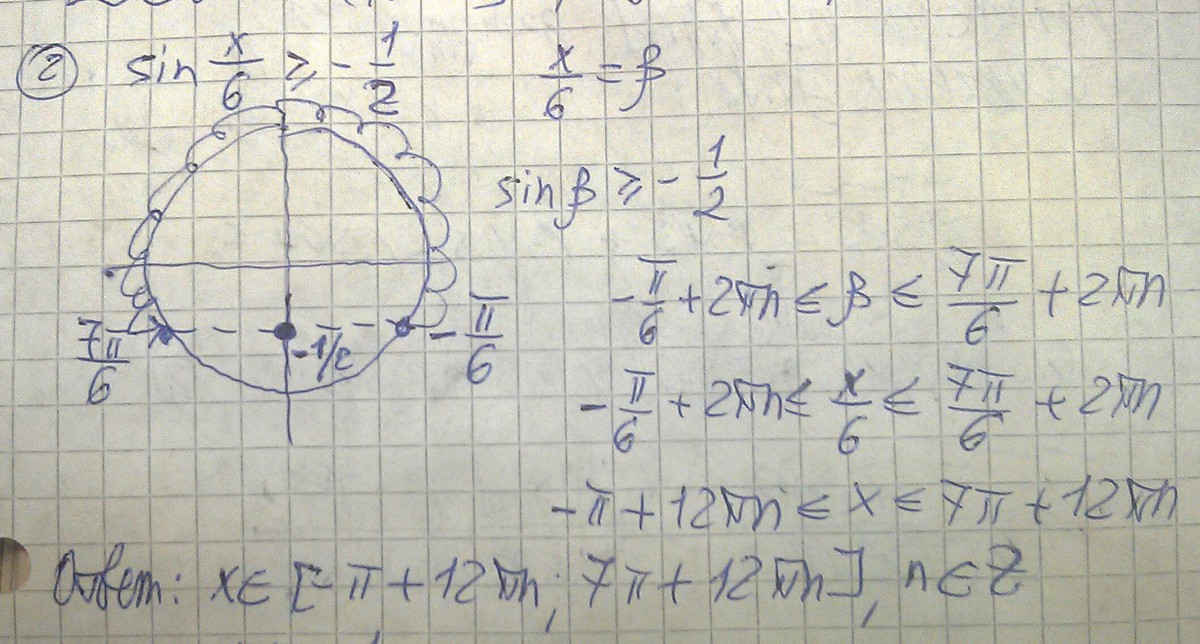 ② sin x/6 ≥ -1/2 x/6 = β
sin β ≥ -1/2
-π/6 + 2πn ≤ β ≤ 7π/6 + 2πn
7π/6 -1/2 -π/6
-π/6 + 2πn ≤ x/6 ≤ 7π/6 + 2πn
-π + 12πn ≤ x ≤ 7π + 12πn
Ответ: x∈[-π + 12πn; 7π + 12πn], n∈Z